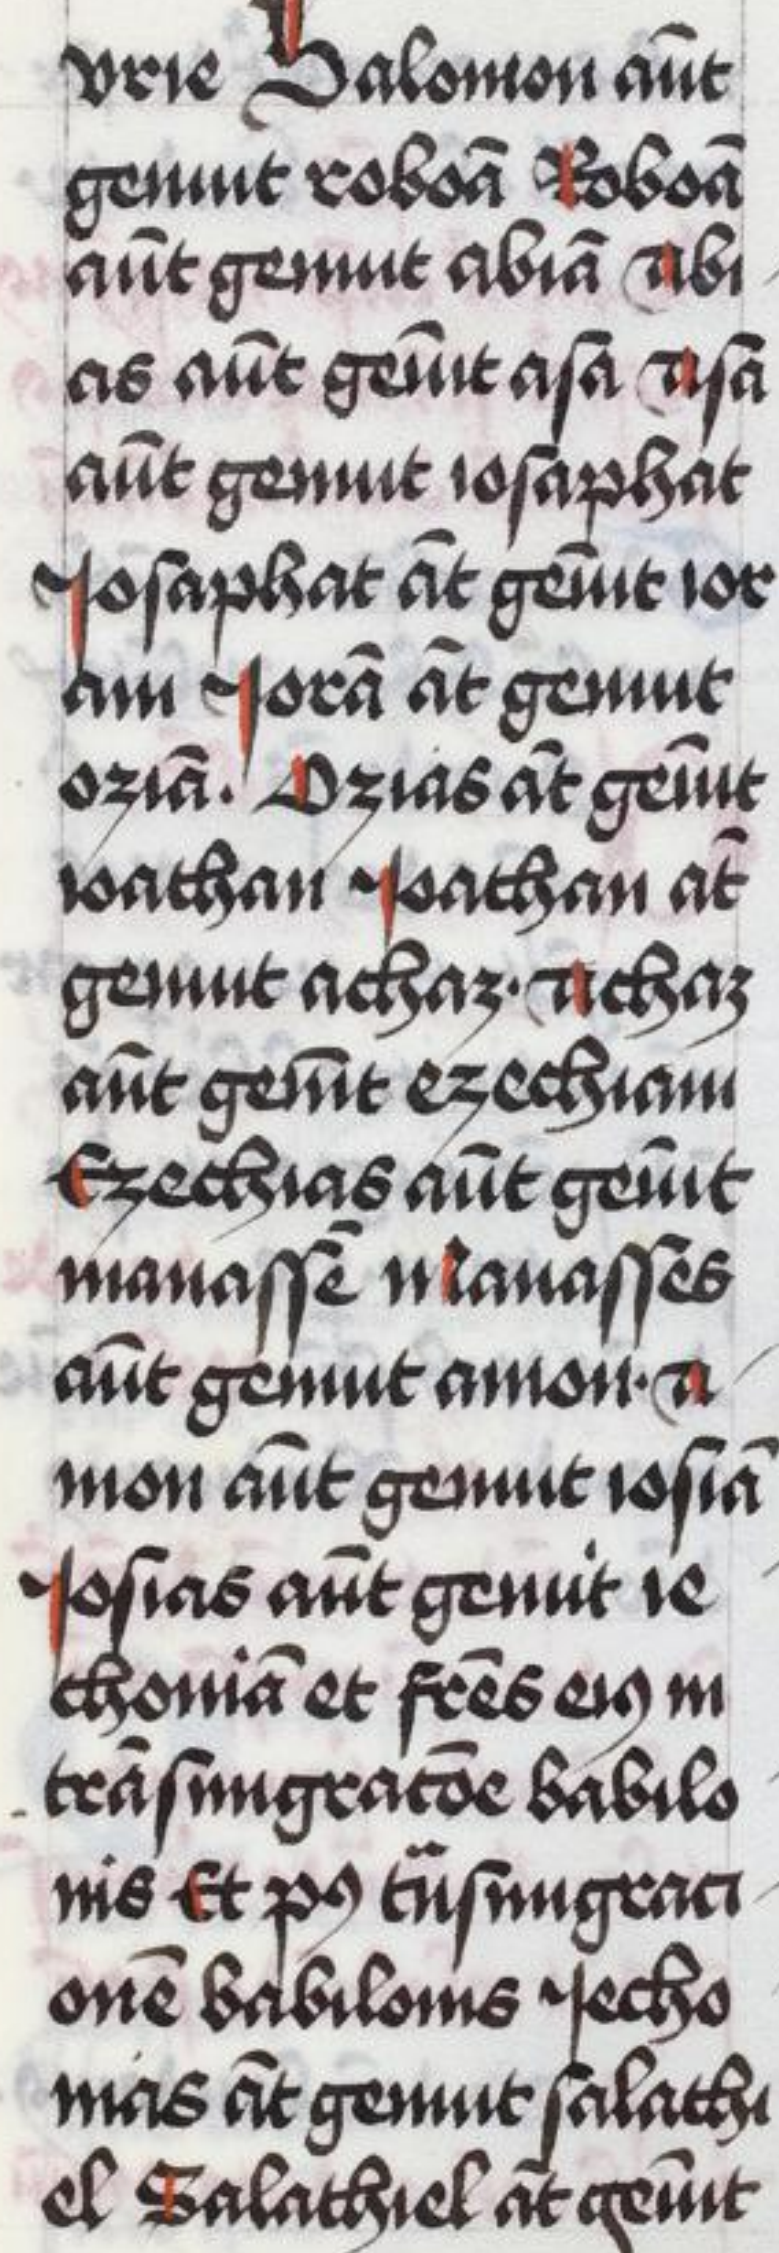 vrie Salomon aūt
genuit roboā Roboā
aūt genuit abiā Abi
as aūt geūit asa Asa
aūt genuit iosaphat
Josaphat āt geūit ior
am Jorā āt genuit
oziā. Ozias āt geūit
ioathan Joathan at̄
genuit achaz· Achaz
aūt geūit ezechiam
Ezechias aūt geūit
manassē Manasses
aūt genuit amon· A
mon aūt genuit iosiā
Josias aūt genuit ie
choniā et fr̄es eiꝰ in
trāsmigratōe babilo
nis Et pꝰ tͣnsmigraci
onē babilonis Jecho
nias āt genuit salathi
el Salathiel āt geūit